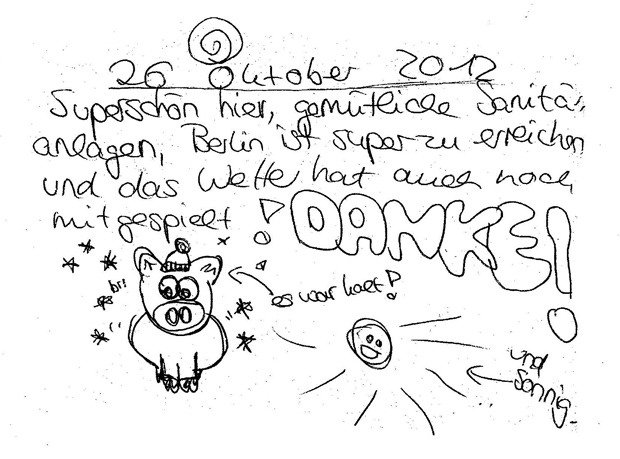 26 Oktober 2012
Superschön hier, gemütliche Sanitä-
anlagen, Berlin ist super zu erreichen
und das Wetter hat auch noch
mitgespielt!
DANKE!
es war kalt!
und
Sonnig.